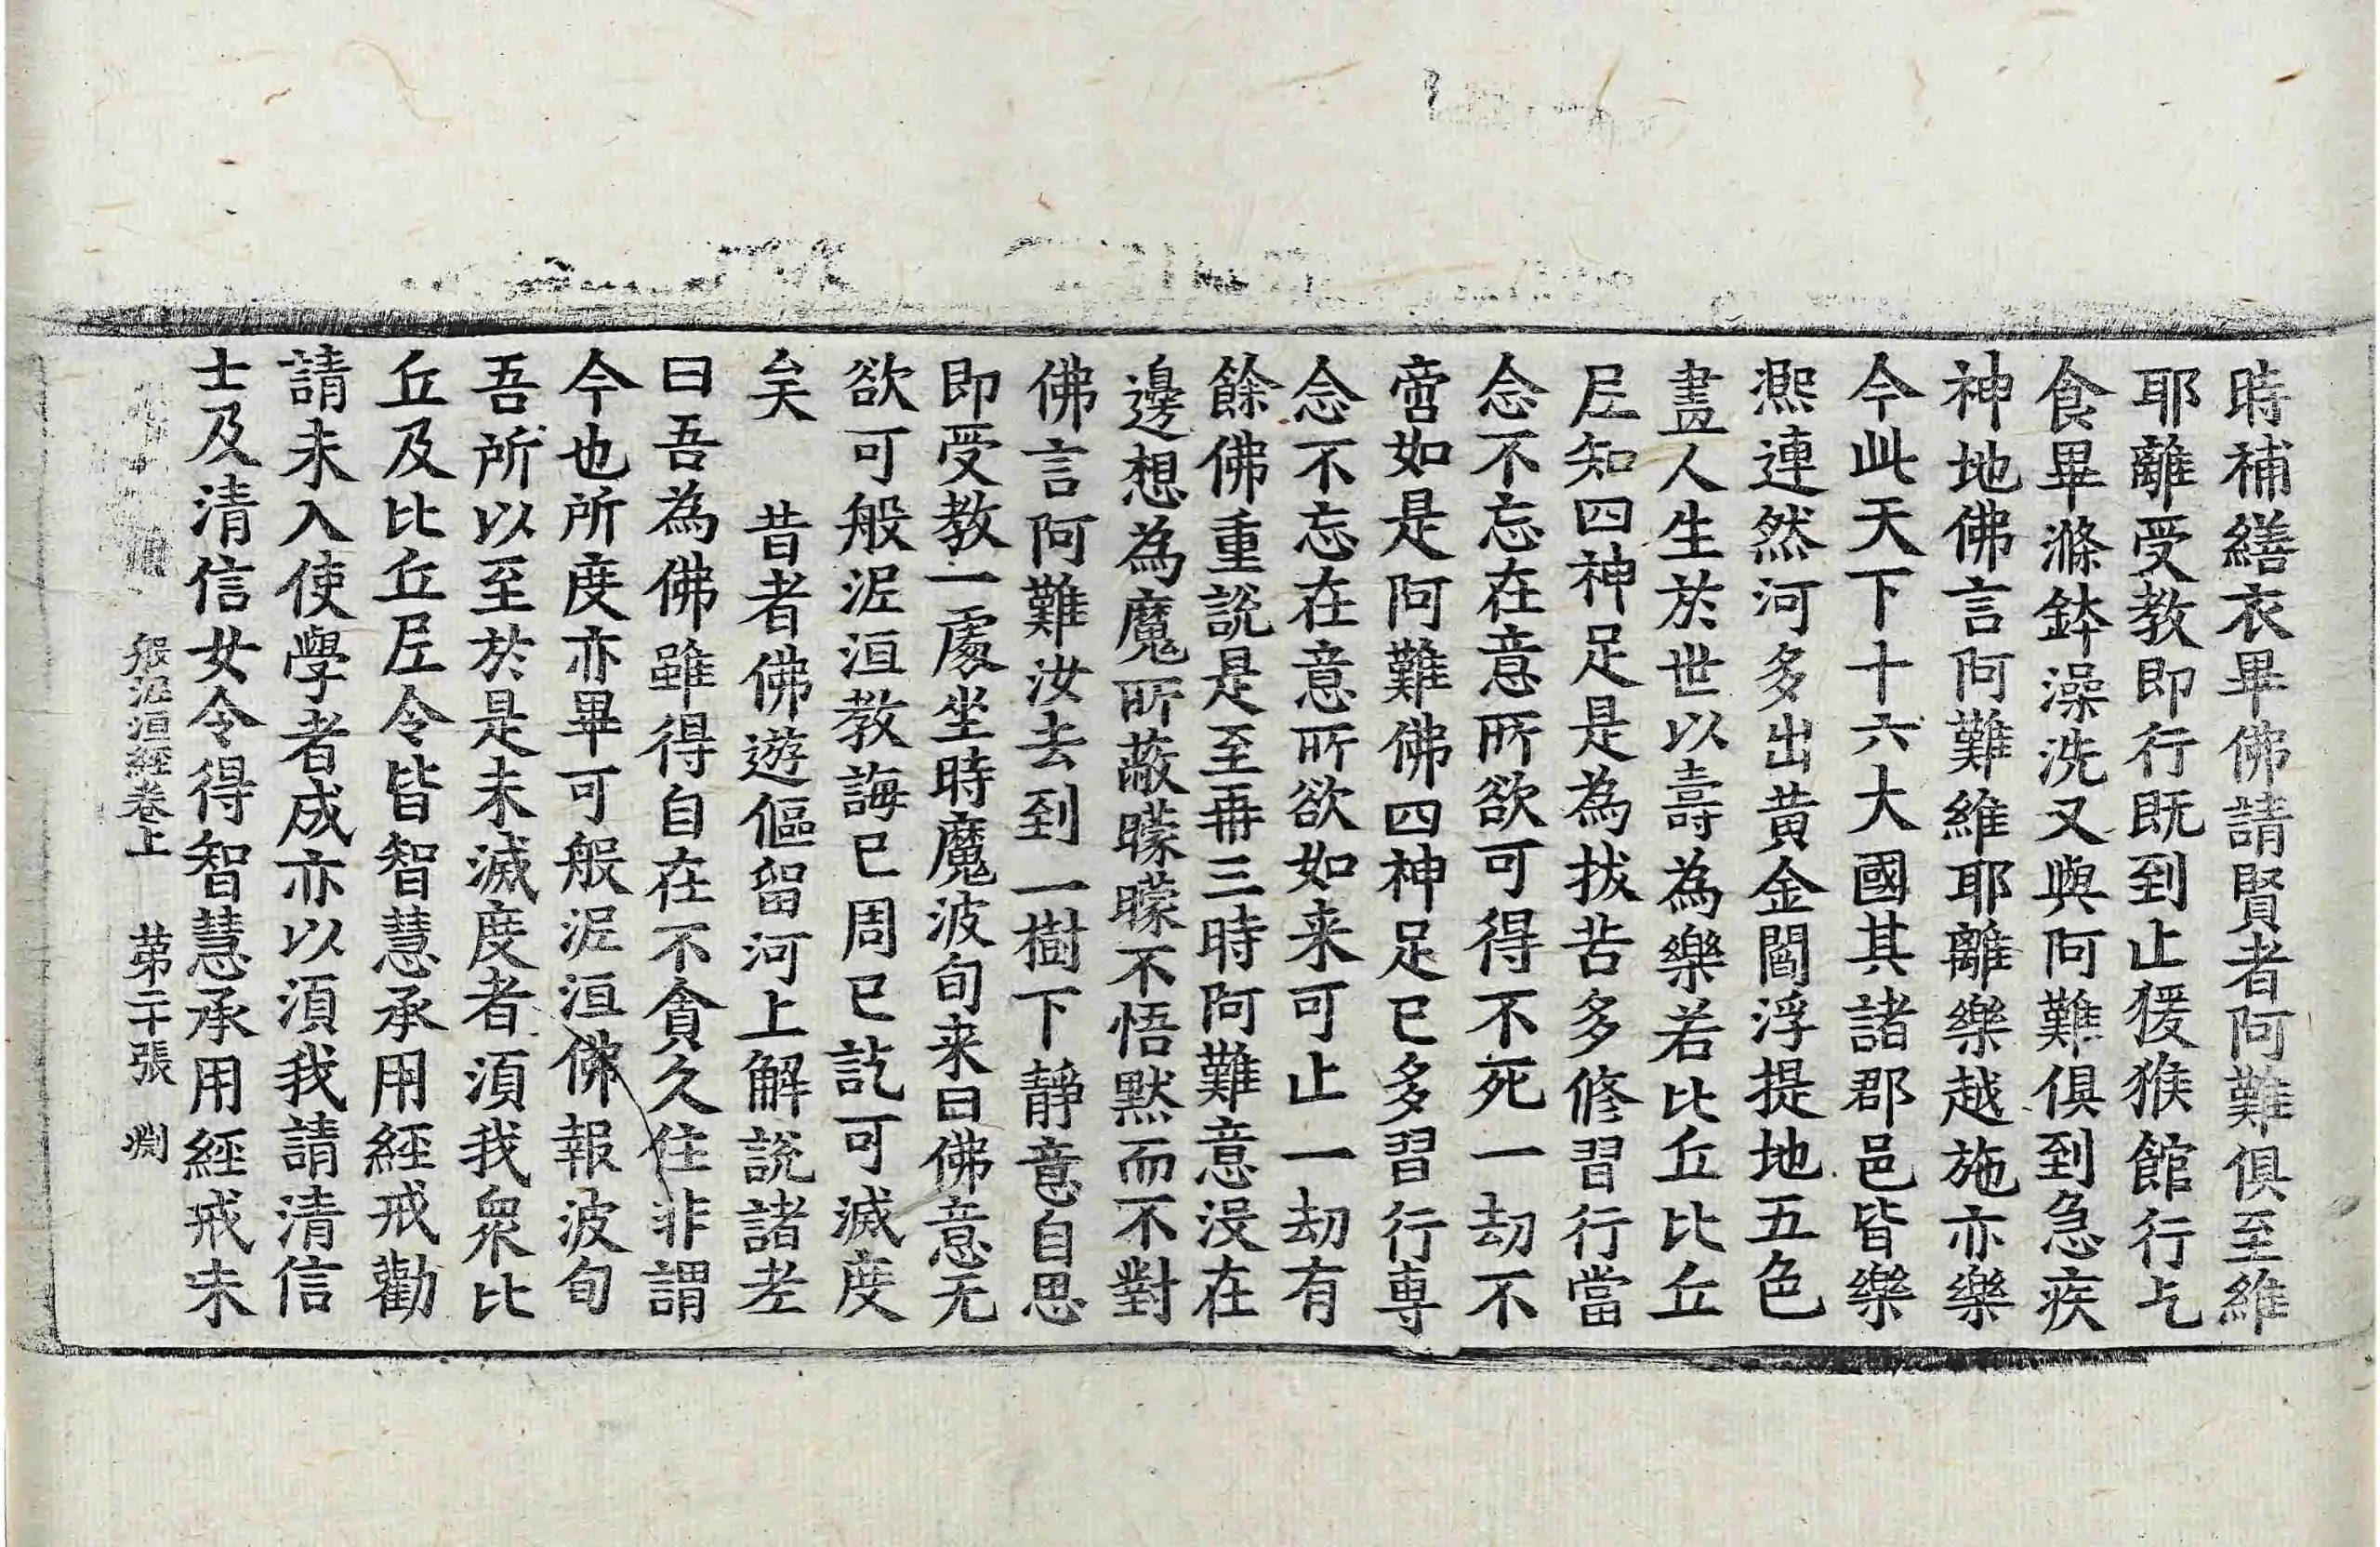 時補繕衣畢佛請賢者阿難俱至維
耶離受教即行既到止猨猴館行乞
食畢滌鉢澡洗又與阿難俱到急疾
神地佛言阿難維耶離樂越施亦樂
今此天下十六大國其諸郡邑皆樂
熈連然河多出黄金閻浮提地五色
畫人生於世以壽為樂若比丘比丘
𡰱知四神足是為拔苦多修習行當
念不忘在意所欲可得不死一劫不
啻如是阿難佛四神足已多習行専
念不忘在意所欲如来可止一劫有
餘佛重說是至再三時阿難意没在
邊想為魔所蔽矇矇不悟黙而不對
佛言阿難汝去到一樹下靜意自思
即受教一處坐時魔波旬来曰佛意无
欲可般泥洹教誨已周已訖可滅度
矣 昔者佛遊傴留河上解說諸老
曰吾為佛雖得自在不貪久住非謂
今也所度亦畢可般泥洹佛報波旬
吾所以至於是未滅度者須我衆比
丘及比丘𡰱令皆智慧承用經戒勸
請未入使學者成亦以須我請清信
士及清信女令得智慧承用經戒未
般泥洹經卷上 第二十張 淵